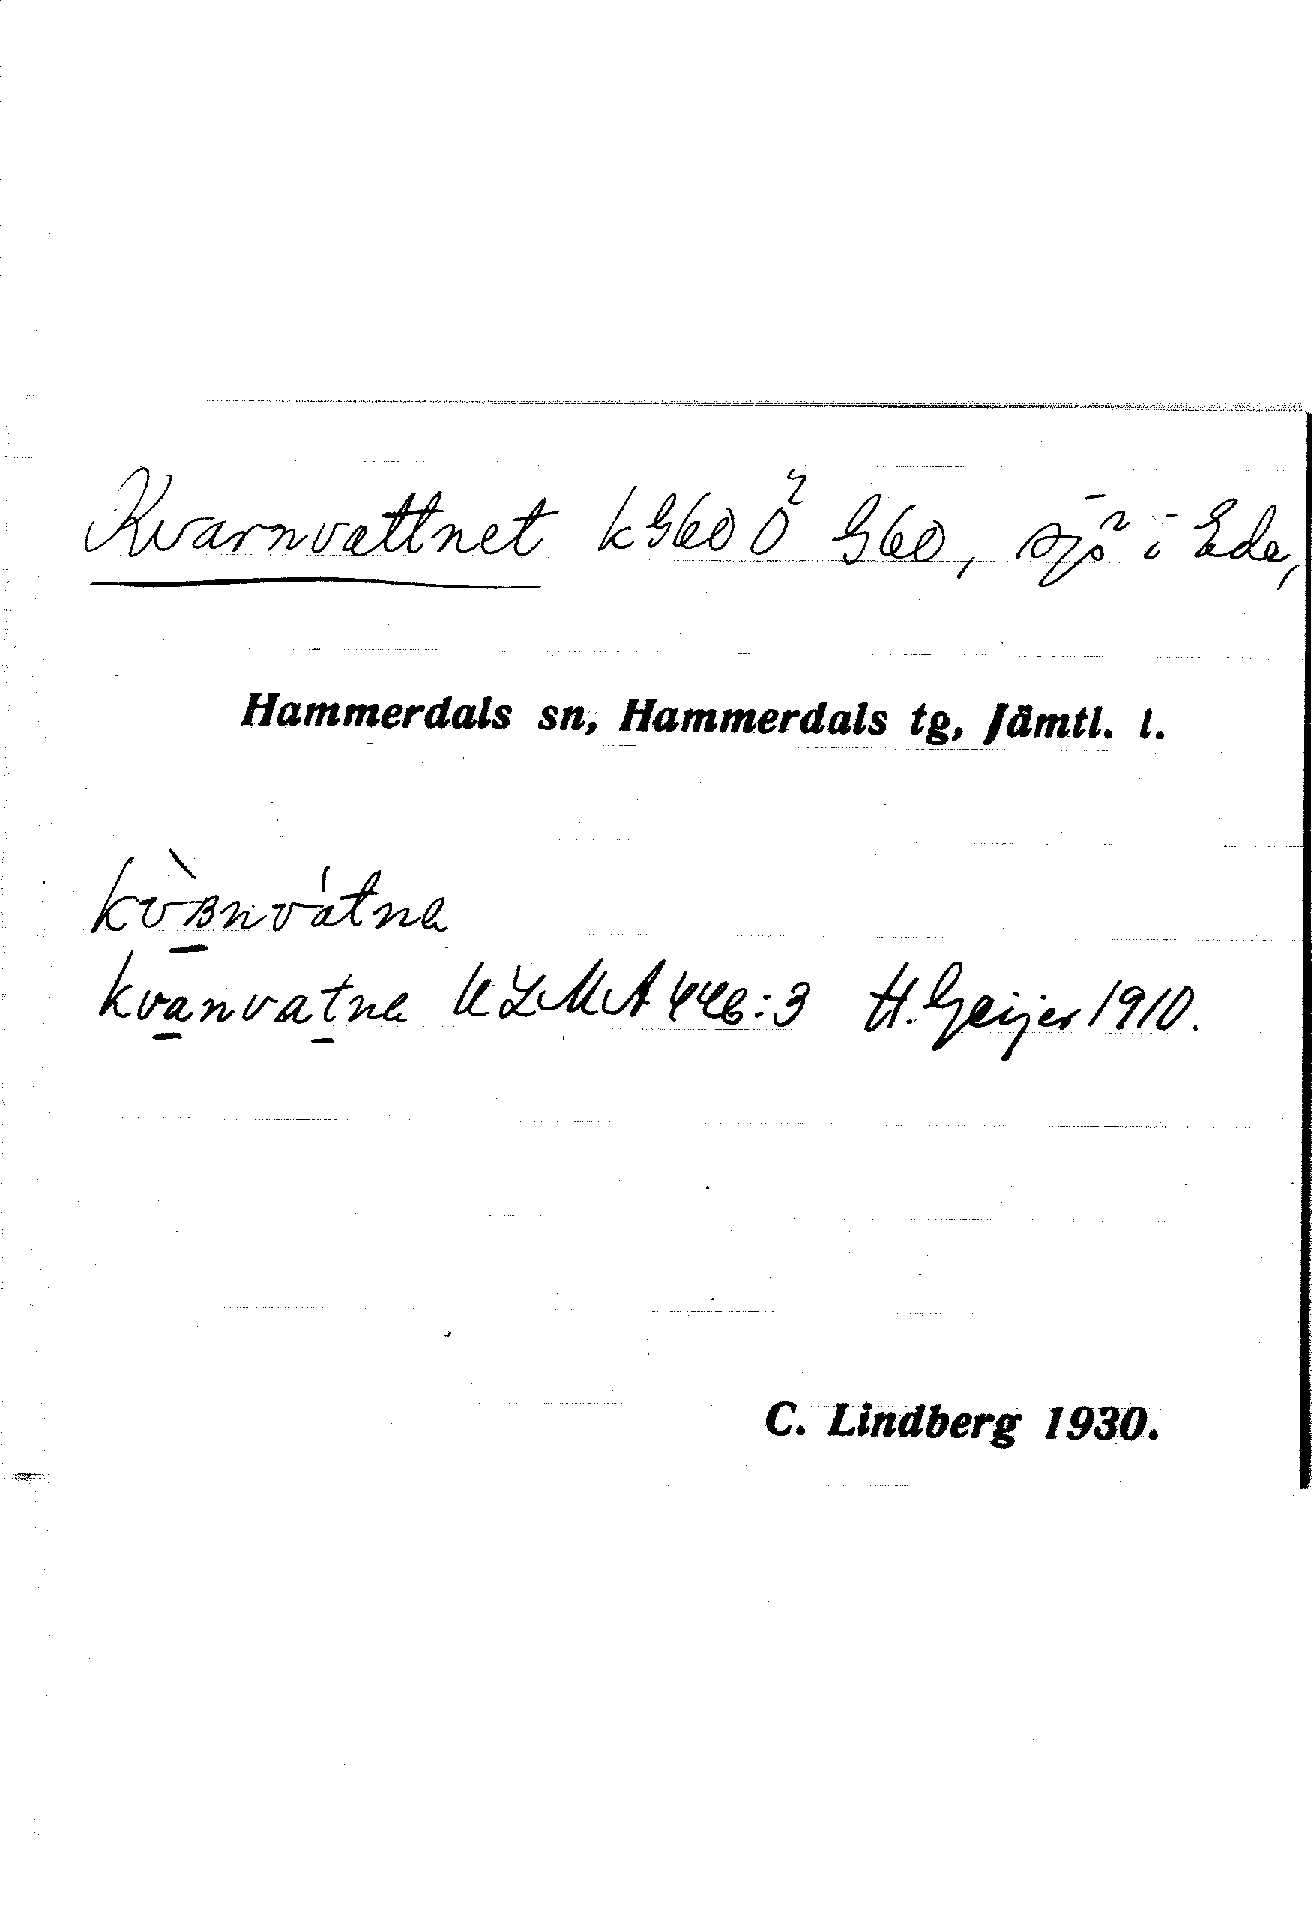 Kvarnvattnet k G60 Ö G60, sjö i Ede,
Hammerdals sn, Hammerdals tg, Jämtl. l.
kvanvatne ULMA 446:3 H. Geijer 1910.
C. Lindberg 1930.